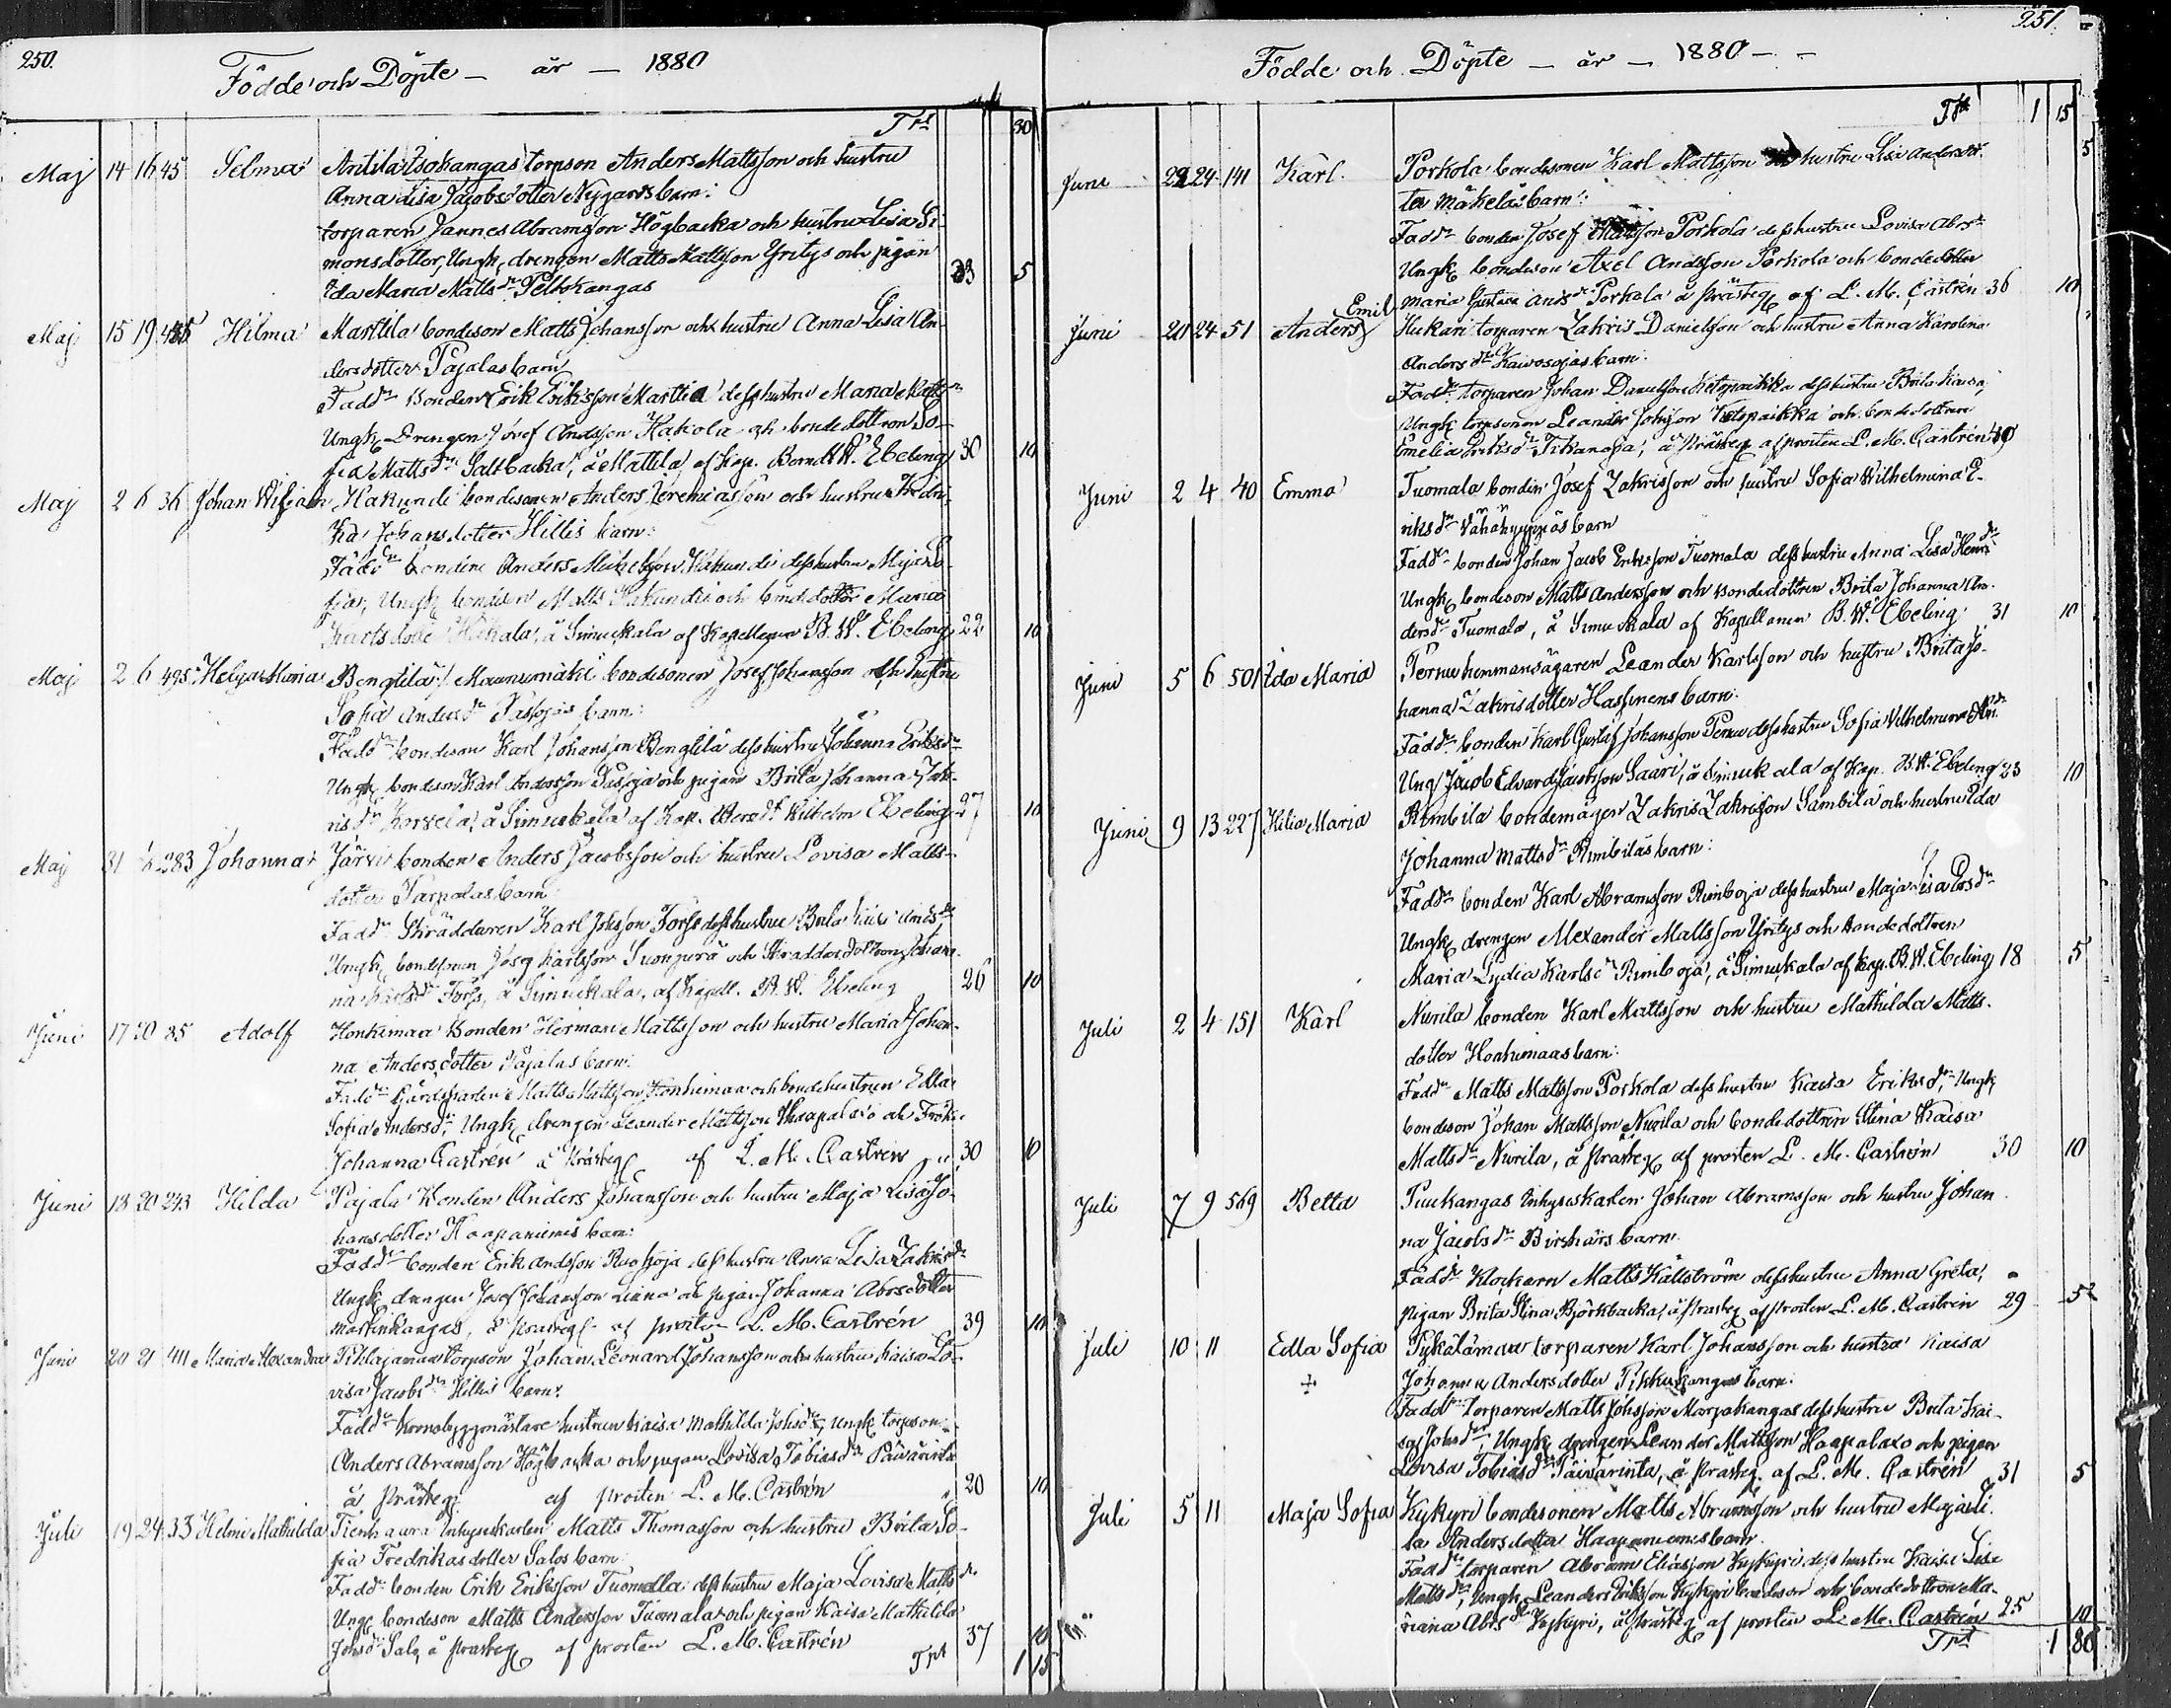 250.
Födde och Döpte — år — 1880
Trt 30
Maj 14 16 45 Selma Antila Isokangas torpson Anders Mattsson och hustru
Anna Lisa Jacobsdotter Nygårds barn:
torparen Jannes Abramsson Högbacka och hustru Lisa Si-
monsdotter, Ungk. drengen Matts Mattsson Yritys och pigan
Ida Maria Matts dr Peltokangas 33 5
Maj 15 19 Hilma Marttila bondeson Matts Johansson och hustru Anna Lisa An-
dersdotter Pajalas barn
Fadd. Bonden Erik Eriksson Marttila dess hustru Maria Matts dr
Ungk. Drengen Josef Andsson Hakola och bondedottren So-
fia Matts dr Saltbacka, å Mattila af Kap. Berndt W. Ebeling 30 10
Maj 2 6 36 Johan Wiljam Hakunde bondesonen Anders Jeremiasson och hustru Fredri-
ka Johansdotter Hillis barn:
Fadd. bonden Anders Hakundi dess hustru Maja So-
fia, Ungk. bondeson Matts Hakundi och bondedotter Maria
Karlsdotter Hakala, å Simukkala af Kapellanen B. W. Ebeling 22 10
Maj 2 6 495 Helga Maria Bengtila / Maunumäki bondesonen Josef Johansson och hustru
Sofia Anders dr Passojas barn:
Fadd. bondeson Karl Johansson Bengtila dess hustru Johanna Eriks dr
Ungk. bondeson Karl Andersson Passoja och pigan Brita Johanna Zak-
ris dr Korkela, å Simukkala af Kap. Berndt Wilhelm Ebeling 27 10
Maj 31 6 283 Johanna Järvi bonden Anders Jacobsson och hustru Lovisa Matts-
dotter Parpalas barn:
Fadd. Skräddaren Karl Johsson Forss dess hustru Brita Kaisa Ands dr
Ungk. bondesonen Josef Karlsson Suonperä och Skräddaredottren Johan-
na Karls dr Forss, å Simukkala, af Kapell. B. W. Ebeling 26 10
Juni 17 20 35 Adolf Honkimaa Bonden Herman Mattsson och hustru Maria Johan-
na Andersdotter Pajalas barn:
Fadd. Gårdskarlen Matts Mattsson Honkimaa och bondehustrun Edla
Sofia Anders dr, Ungk. drengen Leander Mattsson Haapalaxo och Frök.
Johanna Castrén å Prästeg. af L. M. Castrén 30 10
Juni 18 20 243 Hilda Pajala Bonden Anders Johansson och hustru Maja Lisa Jo-
hansdotter Haapaniemis barn:
Fadd. bonden Erik Andsson Ruohoja dess hustru Anna Lisa Zakris dr
Ungk. drengen Josef Johansson Linna och pigan Johanna Abrsdotter
Martinkangas, å prästeg. af prosten L. M. Castrén 39 10
Juni 20 21 411 Maria Alexandra Pihlajamaa torpson Johan Leonard Johansson och hustru Kaisa Lo-
visa Jacobs dr Hillis barn:
Fadd. Kronobyggmästare hustrun Kaisa Mathilda Johs dr, Ungk. torpson
Anders Abramsson Högbacka och pigan Lovisa Tobias dr Päivärinta
å Prästeg. af prosten L. M. Castrén 20 10
Juli 19 24 33 Helmi Mathilda Tienhaara Inhyseskarlen Matts Thomasson och hustru Brita So-
fia Fredriksdotter Salos barn:
Fadd. bonden Erik Eriksson Tuomalla dess hustru Maja Lovisa Matts dr
Ungk. bondeson Matts Andersson Tuomala och pigan Kaisa Mathilda
Johs dr Salo, å prästeg. af prosten L. M. Castrén 37 10
Trt 1 15
251.
Födde och Döpte — år — 1880 —
Trt 1 15
Juni 22 24 141 Karl Porkola bondesonen Karl Mattsson hustru Lisa Andersdot-
ter Mäkeläs barn: 5
Fadd. bonden Josef Mattsson Porkola dess hustru Lovisa Abrs dr
Ungk. bondeson Axel Andsson Porkola och bondedotter
Maria Gustava Ands dr Porkola å Prästeg. af L. M. Castrén 36 10
Juni 21 24 51 Anders Emil Hukari torparen Zakris Danielsson och hustru Anna Karolina
Anders dr Kaivosojas barn:
Fadd. torparen Johan Danielsson Ketopaikka dess hustru Brita Kaisa,
Ungk. torpsonen Leander Johsson Ketopaikka och bondedottren
Emelia Eriks dr Tikanoja, å Prästeg. af prosten L. M. Castrén 40
Juni 2 4 40 Emma Tuomala bonden Josef Zakrisson och hustru Sofia Wilhelmina E-
riks dr Vähähyypäs barn
Fadd. bonden Johan Jacob Eriksson Tuomala dess hustru Anna Lisa Henr dr
Ungk. bondeson Matts Andersson och Bondedottren Brita Johanna An-
ders dr Tuomala, å Simukkala af Kapellanen B. W. Ebeling 31 10
Juni 5 6 501 Ida Maria Pernu hemmansägaren Leander Karlsson och hustru Brita Jo-
hanna Zakrisdotter Hassinens barn:
Fadd. bonden Karl Gustaf Johansson Pernu dess hustru Sofia Wilhelmina An. dr
Ung. Jacob Edvard Jacobsson Saari, å Simukkala af Kap. B. W. Ebeling 23 10
Juni 9 13 227 Hilia Maria Rimbilä bondemågen Zakris Zakrisson Sämbilä och hustru Ida
Johanna Matts dr Rimbiläs barn:
Fadd. bonden Karl Abramsson Rimboja dess hustru Maja Lisa Ers dr
Ungk. drengen Alexander Mattsson Yritys och Bondedottren
Maria Lydia Karls dr Rimboja, å Simukkala af kap. B. W. Ebeling 18 5
Juli 2 4 151 Karl Nurila bonden Karl Mattsson och hustru Mathilda Matts-
dotter Honkimaas barn:
Fadd. Matts Mattsson Porkola dess hustru Kaisa Eriks dr, Ungk.
bondeson Johan Mattsson Nurila och bondedottren Stina Kaisa
Matts dr Nurila, å Prästeg. af prosten L. M. Castrén 30 10
Juli 7 9 569 Betta Puukangas Inhyseskarlen Johan Abramsson och hustru Johan-
na Jacobs dr Birkhärs barn
Fadd. Klockarn Matts Hällström dess hustru Anna Greta,
pigan Brita Stina Björkbacka, å Prästeg. af Prosten L. M. Castrén 29 5
Juli 10 11 Edla Sofia Sykälämaa torparen Karl Johansson och hustru Kaisa
Johanna Andersdotter Pikkukangas barn:
Fadd. Torparen Matts Johsson Marjakangas dess hustru Brita Kai-
sa Johs dr, Ungk. drengen Leander Mattsson Haapalaxo och pigan
Lovisa Tobias dr Päivärinta, å Prästeg. af L. M. Castrén 31 5
Juli 5 11 Maja Sofia Kykyri bondesonen Matts Abramsson och hustru Maja Li-
sa Andersdotter Haapaniemis barn
Fadd. torparen Abram Eliasson Kykyri dess hustru Kaisa Lisa
Matts dr, Ungk. Leander Eriksson Kykyri bondeson och bondedottren Ma-
riana Abrs dr Kykyri, å prästeg. af prosten L. M. Castrén 25 10
Trt 1 80